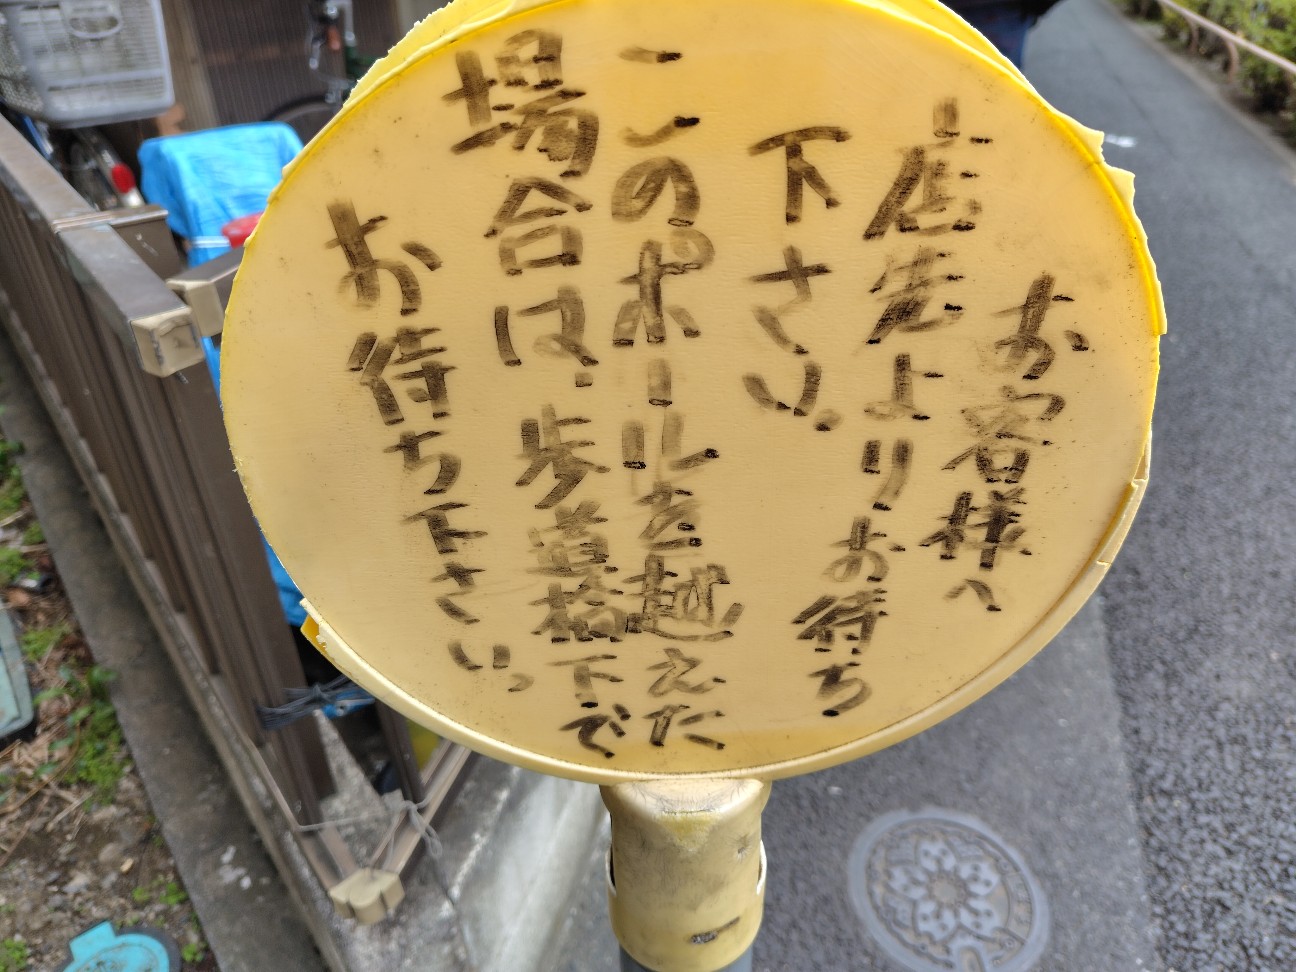 お客様へ
店先よりお待ち
下さい。
このポールを越えた
場合は、歩道橋下で
お待ち下さい。